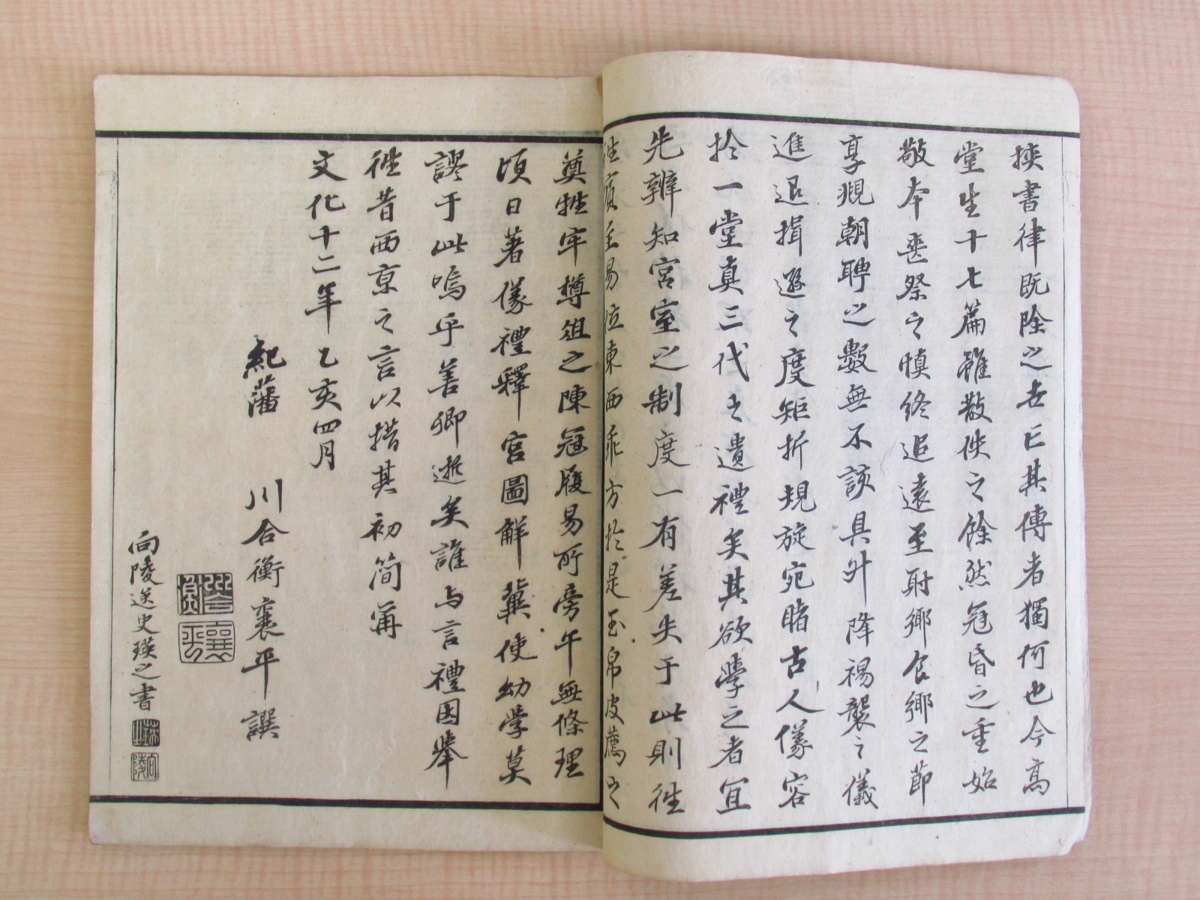 挾書律既除之世已其傳者獨何也今高
堂生十七篇雖散佚之餘然冠昏之重始
敬本喪祭之慎終追遠至射鄉食鄉之節
享覜朝聘之數無不該具升降裼襲之儀
進退揖遜之度矩折規旋宛睹古人儀容
於一堂真三代之遺禮矣其欲學之者宜
先辨知宮室之制度一有差失于此則往
往賓主易位東西乖方於是玉帛皮薦之
奠牲牢樽俎之陳冠履易所旁午無條理
頃日著儀禮釋宮圖解冀使幼學莫
謬于此嗚乎善卿逝矣誰与言禮因舉
往昔西京之言以措其初簡筭
文化十二年乙亥四月
紀藩 川合衡襄平譔
向陵逸史瑛之書